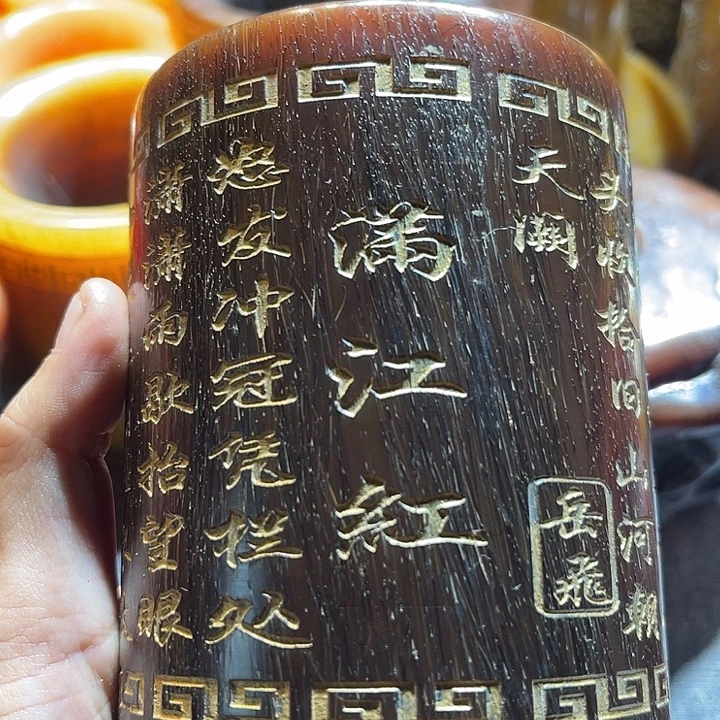 头收拾旧山河朝
天闕
岳飛
滿江紅
怒发冲冠凭栏处
潇潇雨歇抬望眼